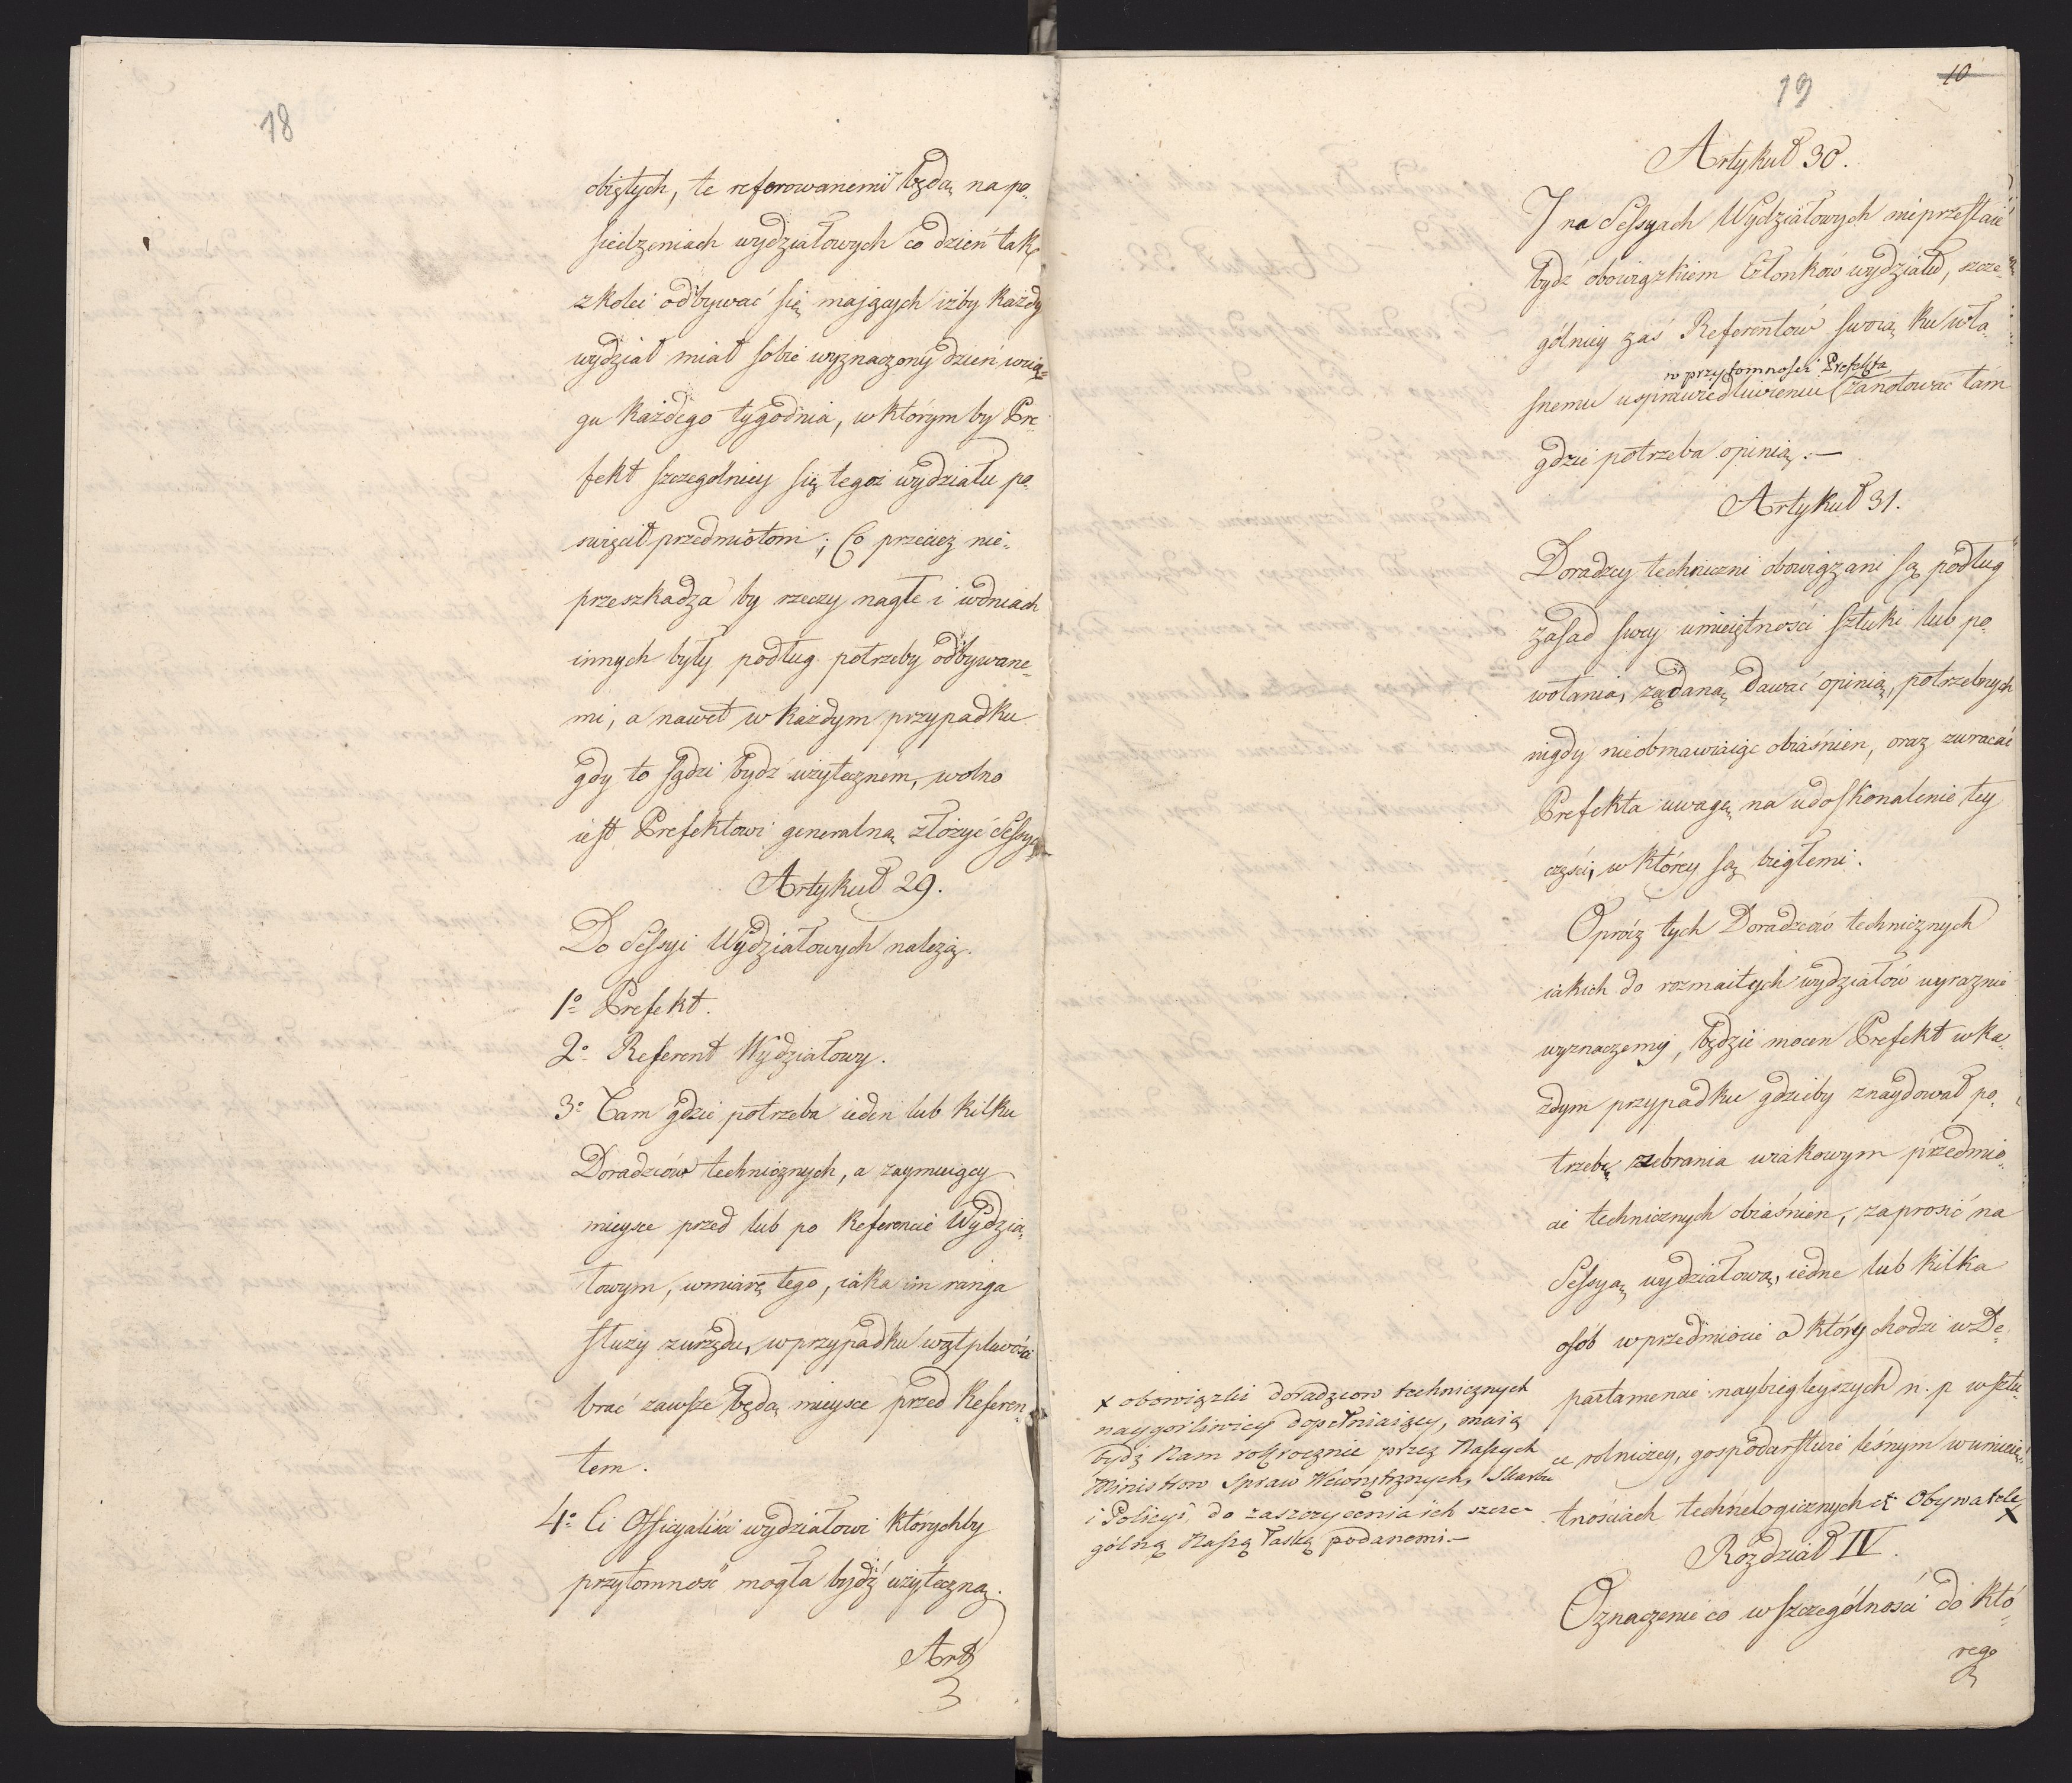 18
obiętych, te referowanemi będą na po-
siedzeniach wydziałowych co dzień tak
z kolei odbywać się mających iżby każdy
wydział miał sobie wyznaczony dzień wcią-
gu każdego tygodnia, w którym by Pre-
fekt szczegolniey się tegoż wydziału po-
swięcił przedmiotom; Co przecież nie-
przeszkadza by rzeczy nagłe i wdniach
innych były podług potrzeby odbywane-
mi, a nawet w każdym przypadku
gdy to sądzi bydź użytecznem, wolno
iest Prefektowi generalną złożyć Sessyą
Artykuł 29.
Do Sessyi Wydziałowych należą.
1o Prefekt.
2o Referent Wydziałowy.
3o Tam gdzie potrzeba ieden lub kilku
Doradzców technicznych, a zaymuiący
mieysce przed lub po Referencie Wydzia-
łowym, wmiarę tego, iaka im ranga
służy zurzędu, w przypadku wątpliwości
brać zawsze będą mieysce przed Referen-
tem.
4o Ci Officyaliści wydziałowi którychby
przytomność mogła bydź użyteczną.
Art
19
10
Artykuł 30.
I na Sessyach Wydziałowych nieprzestaie
bydź obowiązkiem Członków wydziału, szcze-
gólniey zaś Referentów swoią ku wła-
w przytomności Prefekta
snemu usprawiedliwieniu zanotować tam
gdzie potrzeba opinią.—
Artykuł 31.
Doradzcy techniczni obowiązani są podług
zasad swey umieiętności sztuki lub po-
wołania, żądaną dawać opinią, potrzebnych
nigdy nieobmawiaiąc obiaśnien, oraz zwracać
Prefekta uwagę na udoskonalenie tey
części, w którey są biegłemi.
Oprócz tych Doradzców technicznych
iakich do rozmaitych wydziałów wyraznie
wyznaczemy, będzie mocen Prefekt w ka-
żdym przypadku gdzieby znaydował po-
trzebę zebrania wiakowym przedmio-
cie technicznych obiaśnien, zaprosić na
Sessyą wydziałową, iedne lub kilka
osób wprzedmiocie o który chodzi w De-
partamencie naybiegleyszych n. p w sztu-
ce rolniczey, gospodarstwie leśnym w umieię-
tnościach technologicznych et Obywatele x
x obowiązki doradzcow technicznych
naygorliwiey dopełniaiący, maią
bydź Nam rokrocznie przez Naszych
Ministrow Spraw Wewnętrznych, Skarbu
i Policyi, do zaszczycenia ich szcze-
gólną Naszą łaską podanemi—
Rozdział IV.
Oznaczenie co w szczególności do któ-
rego